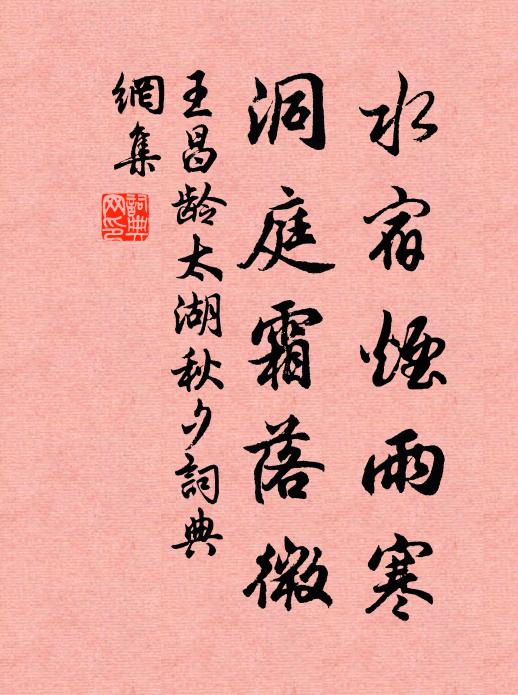 水宿煙雨寒
洞庭霜落微
王昌龄太湖秋夕詞典
網集
詞典
网印